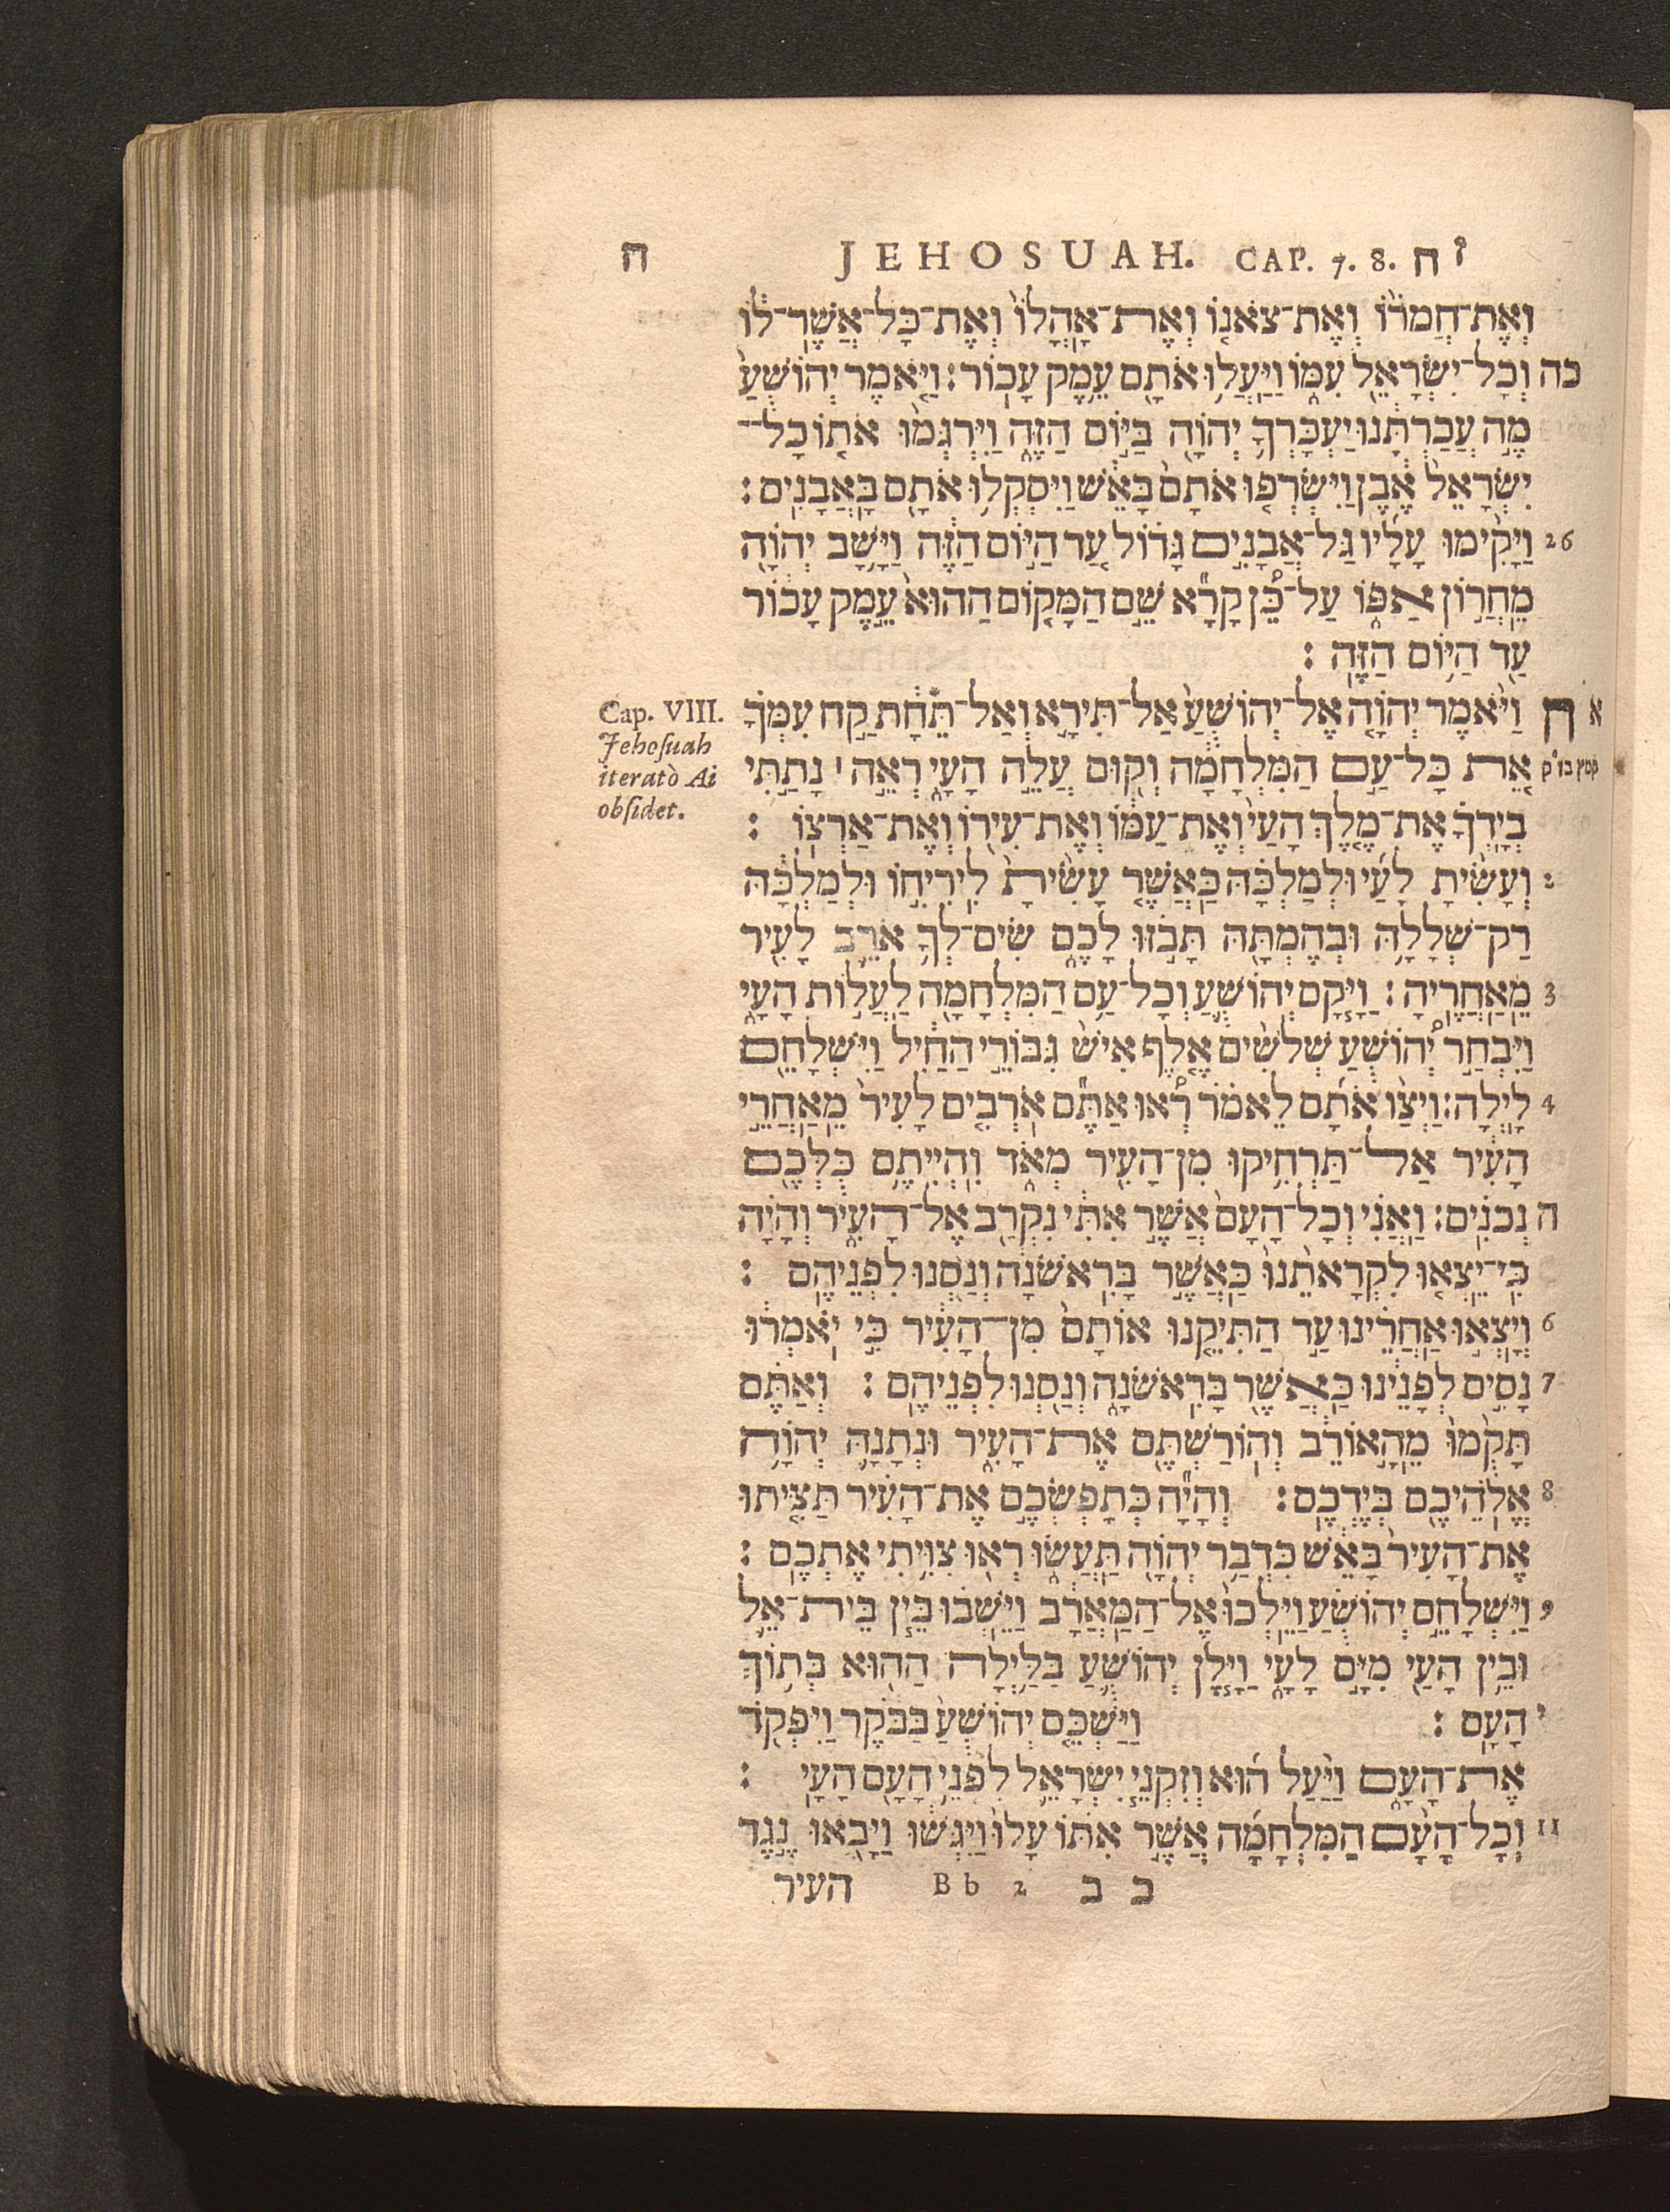 ח JEHOSUAH. CAP. 7. 8. ז ח
וְאֶת־חֲמֹר֨וֹ וְאֶת־צֹאנ֤וֹ וְאֶֽת־אָֽהֳלוֹ֙ וְאֶת־כָּל־אֲשֶׁר־ל֔וֹ
כה וְכָל־יִשְׂרָאֵ֖ל עִמּ֑וֹ וַיַּעֲל֥וּ אֹתָ֖ם עֵ֥מֶק עָכֽוֹר׃ וַיֹּ֤אמֶר יְהוֹשֻׁ֙עַ֙
מֶ֣ה עֲכַרְתָּ֔נוּ יַעְכָּרְךָ֥ יְהוָֹ֖ה בַּיּ֣וֹם הַזֶּ֑ה וַיִּרְגְּמ֨וּ אֹת֤וֹ כָל־
יִשְׂרָאֵל֙ אֶ֔בֶן וַיִּשְׂרְפ֤וּ אֹתָם֙ בָּאֵ֔שׁ וַיִּסְקְל֥וּ אֹתָ֖ם בָּאֲבָנִֽים׃
26 וַיָּקִ֨ימוּ עָלָ֜יו גַּל־אֲבָנִ֣ים גָּד֗וֹל עַ֚ד הַיּ֣וֹם הַזֶּ֔ה וַיָּ֥שָׁב יְהוָֹ֖ה
מֵחֲר֣וֹן אַפּ֑וֹ עַל־כֵּ֠ן קָרָ֞א שֵׁ֣ם הַמָּק֤וֹם הַהוּא֙ עֵ֣מֶק עָכ֔וֹר
עַ֖ד הַיּ֥וֹם הַזֶּֽה׃
Cap. VIII.
Jehoſuah
iteratò Ai
obſidet.
א ח וַיֹּ֨אמֶר יְהוָֹ֤ה אֶל־יְהוֹשֻׁ֙עַ֙ אַל־תִּירָ֣א וְאַל־תֵּחָ֔ת קַ֣ח עִמְּךָ֗
קמץ בז״ק אֵ֚ת כָּל־עַ֣ם הַמִּלְחָמָ֔ה וְק֖וּם עֲלֵ֣ה הָעָ֑י רְאֵ֣ה ׀ נָתַ֣תִּי
בְיָדְךָ֗ אֶת־מֶ֤לֶךְ הָעַי֙ וְאֶת־עַמּ֔וֹ וְאֶת־עִיר֖וֹ וְאֶת־אַרְצֽוֹ׃
2 וְעָשִׂ֨יתָ לָעַ֜י וּלְמַלְכָּ֗הּ כַּאֲשֶׁ֨ר עָשִׂ֤יתָ לִֽירִיחוֹ֙ וּלְמַלְכָּ֔הּ
רַק־שְׁלָלָ֥הּ וּבְהֶמְתָּ֖הּ תָּבֹ֣זּוּ לָכֶ֑ם שִׂים־לְךָ֥ אֹרֵ֛ב לָעִ֖יר
3 מֵאַחֲרֶֽיהָ׃ וַיָּ֧קָם יְהוֹשֻׁ֛עַ וְכָל־עַ֥ם הַמִּלְחָמָ֖ה לַעֲל֣וֹת הָעָ֑י
וַיִּבְחַ֣ר יְ֠הוֹשֻׁעַ שְׁלֹשִׁ֨ים אֶ֤לֶף אִישׁ֙ גִּבּוֹרֵ֣י הַחַ֔יִל וַיִּשְׁלָחֵ֖ם
4 לָֽיְלָה׃ וַיְצַ֨ו אֹתָ֜ם לֵאמֹ֗ר רְ֠אוּ אַתֶּ֞ם אֹרְבִ֤ים לָעִיר֙ מֵאַחֲרֵ֣י
הָעִ֔יר אַל־תַּרְחִ֥יקוּ מִן־הָעִ֖יר מְאֹ֑ד וִהְיִיתֶ֥ם כֻּלְּכֶ֖ם
ה נְכֹנִֽים׃ וַאֲנִ֗י וְכָל־הָעָם֙ אֲשֶׁ֣ר אִתִּ֔י נִקְרַ֖ב אֶל־הָעִ֑יר וְהָיָ֗ה
כִּֽי־יֵצְא֤וּ לִקְרָאתֵ֙נוּ֙ כַּאֲשֶׁ֣ר בָּרִֽאשֹׁנָ֔ה וְנַ֖סְנוּ לִפְנֵיהֶֽם׃
6 וְיָצְא֣וּ אַחֲרֵ֗ינוּ עַ֣ד הַתִּיקֵ֤נוּ אוֹתָם֙ מִן־הָעִ֔יר כִּ֣י יֹֽאמְר֔וּ
7 נָסִ֣ים לְפָנֵ֔ינוּ כַּאֲשֶׁ֖ר בָּרִֽאשֹׁנָ֑ה וְנַ֖סְנוּ לִפְנֵיהֶֽם׃ וְאַתֶּ֗ם
תָּקֻ֙מוּ֙ מֵהָ֣אוֹרֵ֔ב וְהוֹרַשְׁתֶּ֖ם אֶת־הָעִ֑יר וּנְתָנָ֛הּ יְהוָֹ֥ה
8 אֱלֹהֵיכֶ֖ם בְּיֶדְכֶֽם׃ וְהָיָ֞ה כְּתָפְשְׂכֶ֣ם אֶת־הָעִ֗יר תַּצִּ֤יתוּ
אֶת־הָעִיר֙ בָּאֵ֔שׁ כִּדְבַ֥ר יְהוָֹ֖ה תַּעֲשׂ֑וּ רְא֖וּ צִוִּ֥יתִי אֶתְכֶֽם׃
9 וַיִּשְׁלָחֵ֣ם יְהוֹשֻׁ֗עַ וַיֵּֽלְכוּ֙ אֶל־הַמַּאֲרָ֔ב וַיֵּשְׁב֗וּ בֵּ֧ין בֵּֽית־אֵ֛ל
וּבֵ֥ין הָעַ֖י מִיָּ֣ם לָעָ֑י וַיָּ֧לֶן יְהוֹשֻׁ֛עַ בַּלַּ֥יְלָה הַה֖וּא בְּת֥וֹךְ
י הָעָֽם׃ וַיַּשְׁכֵּ֤ם יְהוֹשֻׁ֙עַ֙ בַּבֹּ֔קֶר וַיִּפְקֹ֖ד
אֶת־הָעָ֑ם וַיַּ֨עַל ה֜וּא וְזִקְנֵ֧י יִשְׂרָאֵ֛ל לִפְנֵ֥י הָעָ֖ם הָעָֽי׃
11 וְכָל־הָעָ֨ם הַמִּלְחָמָ֜ה אֲשֶׁ֣ר אִתּ֗וֹ עָלוּ֙ וַֽיִּגְּשׁ֔וּ וַיָּבֹ֖אוּ נֶ֣גֶד
ב ב Bb 2 העיר